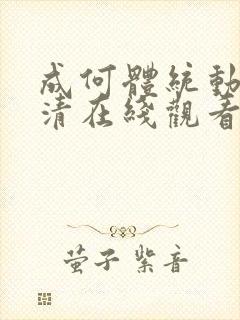 成何體統動
清在綫觀看
萤子 紫音